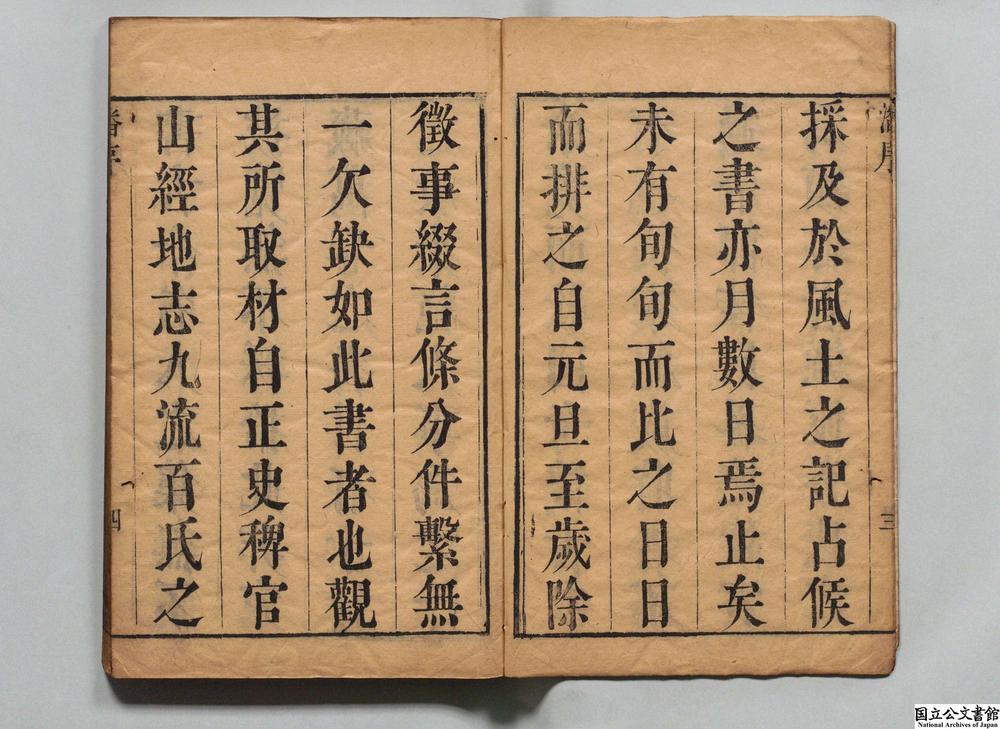 採及於風土之記占候
之書亦月數日焉止矣
未有旬旬而比之日日
而排之自元旦至歲除
徵事綴言條分件繫無
一欠缺如此書者也觀
其所取材自正史稗官
山經地志九流百氏之
三
四
国立公文書館
National Archives of Japan